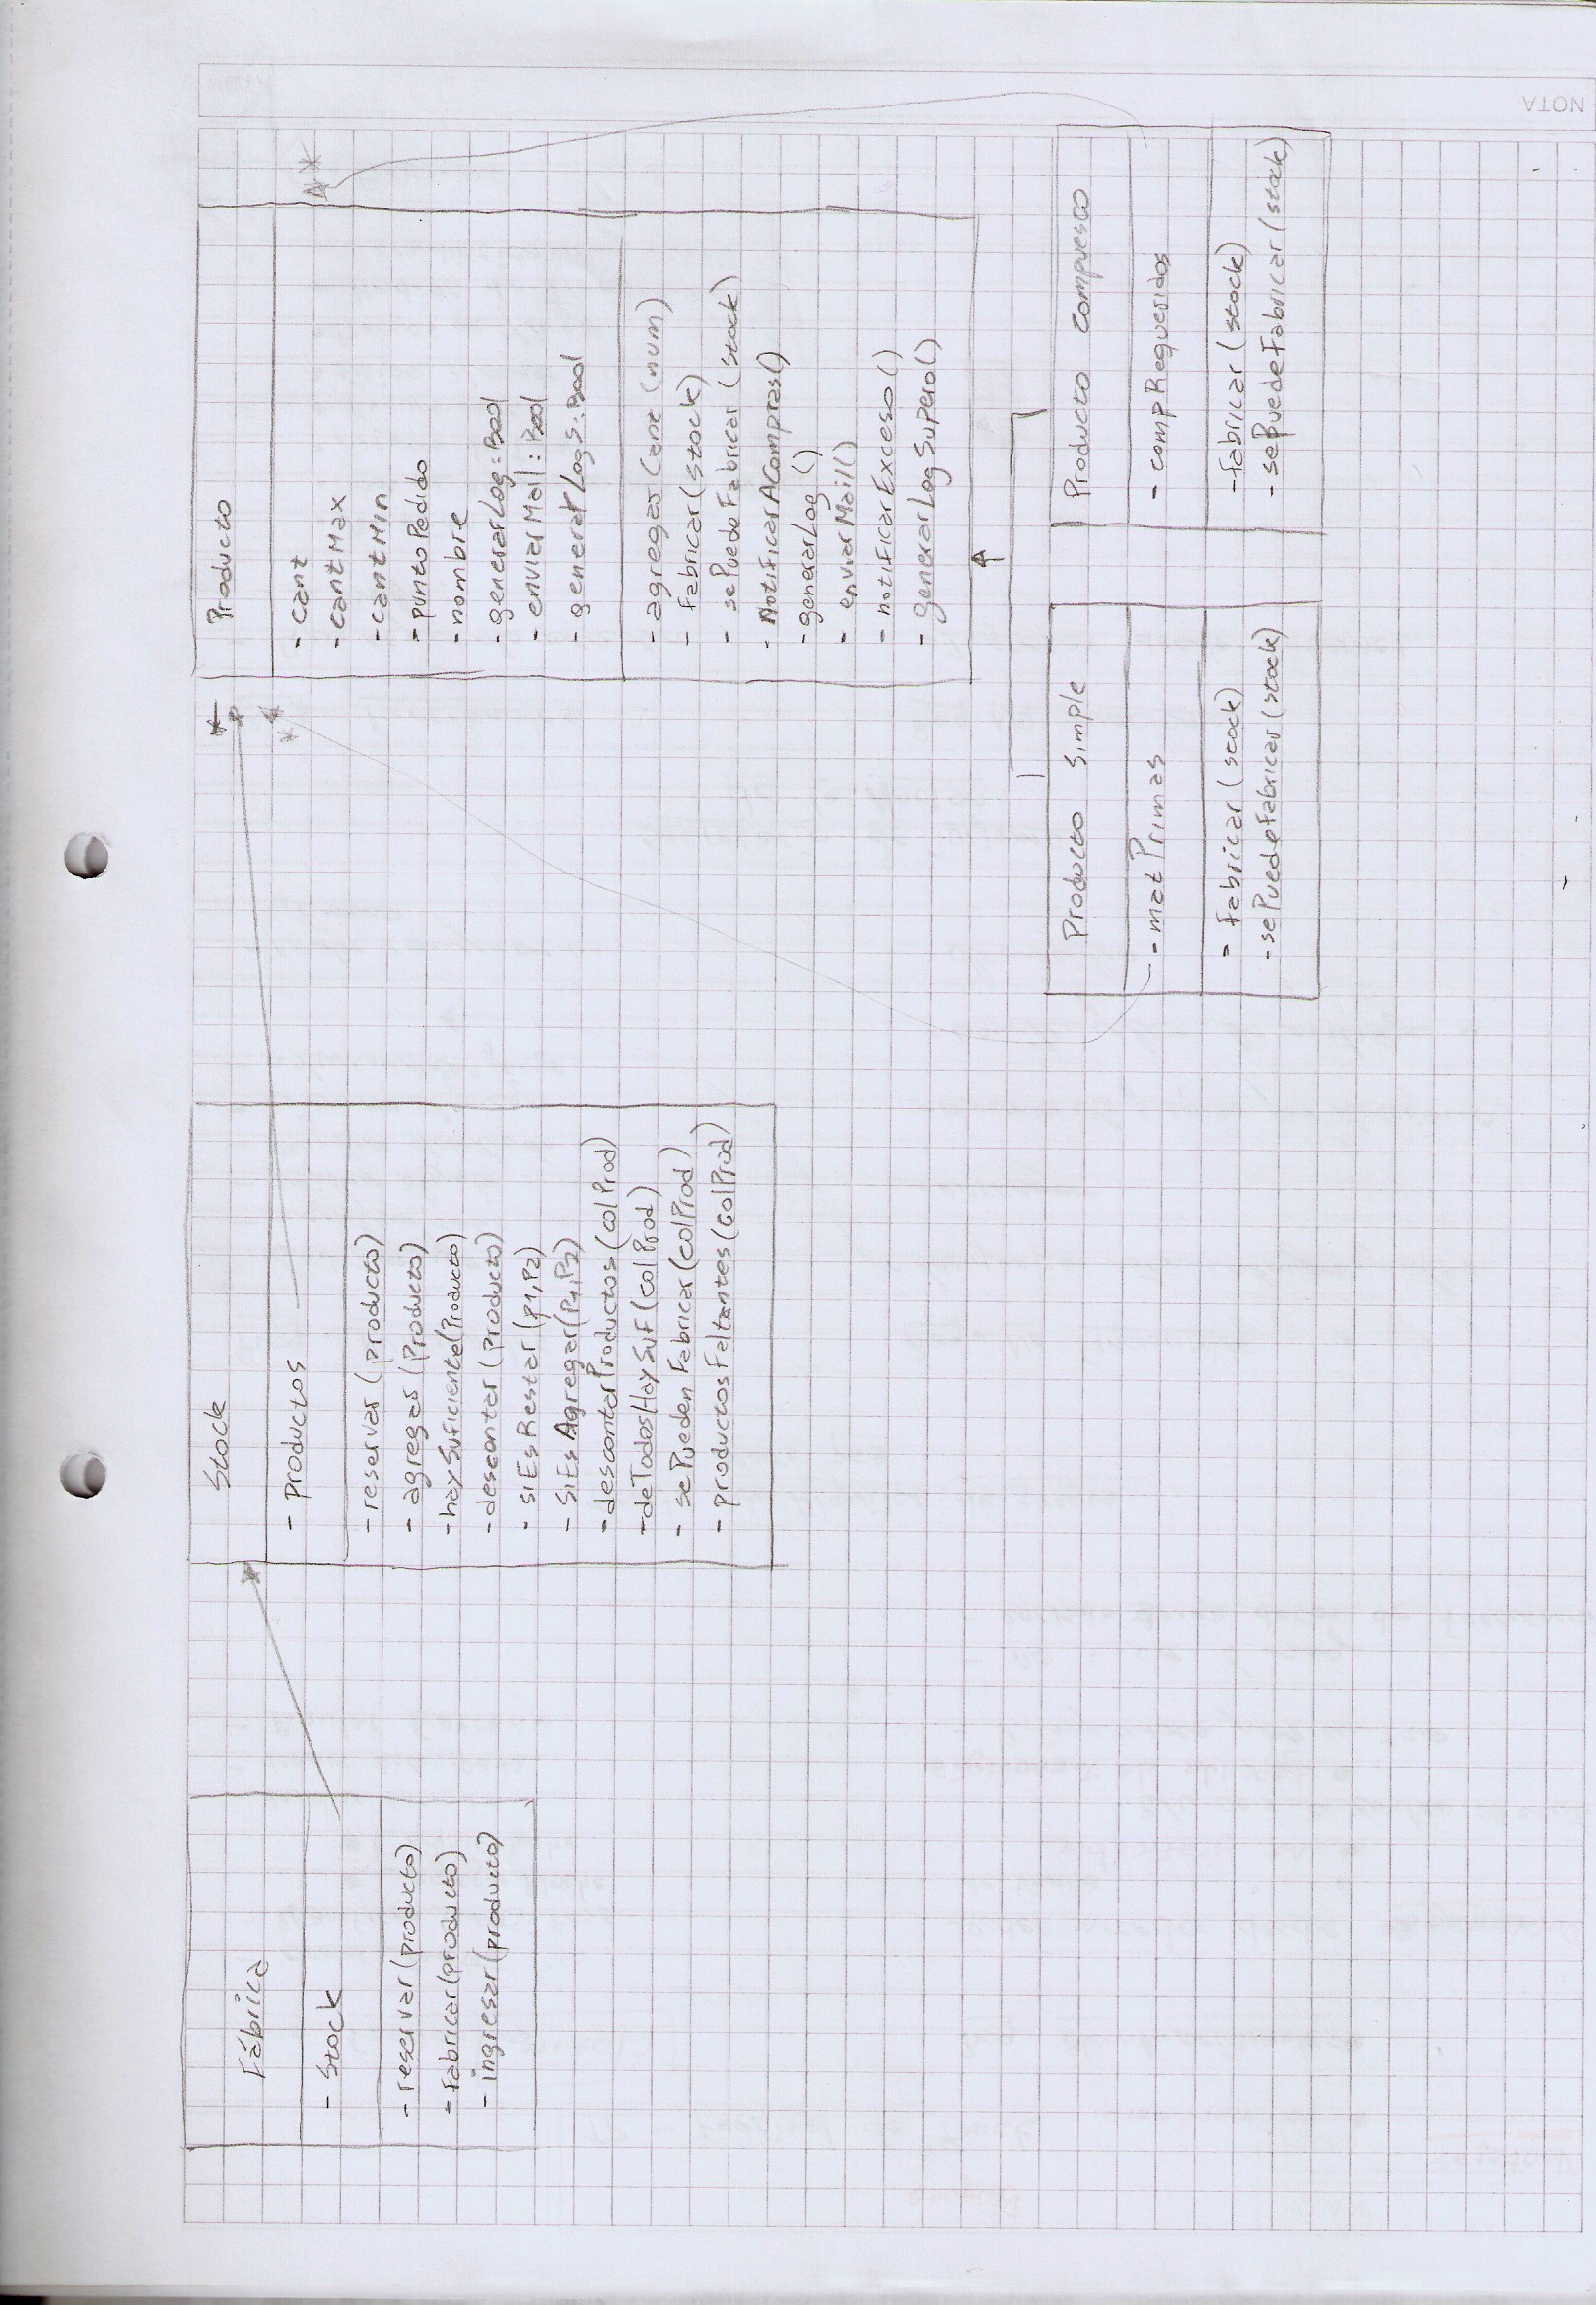 Fábrica
- Stock
- reservar (producto)
- fabricar (producto)
- ingresar (producto)
Stock
- Productos
- reservar (producto)
- agregar (Producto)
- haySuficiente (Producto)
- descontar (Producto)
- siEsRestar (p1, P2)
- SiEsAgregar (P1, P2)
- descontarProductos (colProd)
- deTodosHaySuf (colProd)
- sePuedenFabricar (colProd)
- productosFaltantes (ColProd)
*
*
Producto
- cant
- cantMax
- cantMin
- puntoPedido
- nombre
- generarLog : Bool
- enviarMail : Bool
- generarLogS : Bool
- agregar Cant (num)
- Fabricar (stock)
- sePuedeFabricar (stock)
- NotificarACompras ()
- generarLog ()
- enviarMail ()
- notificarExceso ()
- generarLogSupero ()
*
Producto Simple
- matPrimas
- Fabricar (stock)
- sePuedeFabricar (stock)
Producto Compuesto
- compRequeridos
- fabricar (stock)
- sePuedeFabricar (stock)
NOTA